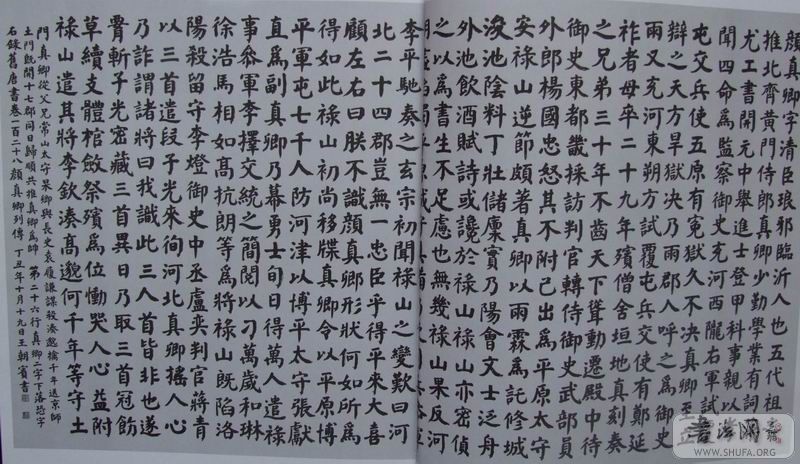 顏真卿字清臣琅邪臨沂人也五代祖
推北齊黃門侍郎真卿少勤學業有詞
尤工書開元中舉進士登甲科事親以
聞四命為監察御史充河西隴右軍試
屯交兵使五原有冤獄久不決真卿至
辯之天方旱獄決乃雨郡人呼之為御史
雨又充河東朔方試覆屯兵交使有鄭延
祚者母卒二十九年殯僧舍垣地真刻奏
之兄弟三十年不齒天下聳動遷殿中侍
御史東都畿採訪判官轉侍御史武部員
外郎楊國忠怒其不附己出為平原太守
安祿山逆節頗著真卿以雨霖為託修城
浚池陰料丁壯儲廩實乃陽會文士泛舟
外池飲酒賦詩或讒於祿山祿山亦密偵
之以為書生不足慮也無幾祿山果反河
李平馳奏之玄宗初聞祿山之變歎曰河
北二十四郡豈無一忠臣乎得平來大喜
顧左右曰朕不識顏真卿形狀何如所為
得如此祿山初尚移牒真卿令以平原博
平軍屯七千人防河津以博平太守張獻
直為副真卿乃募勇士旬日得萬人遣祿
事參軍李擇交統之簡閱以刁萬歲和琳
徐浩馬相如高抗朗等為將祿山既陷洛
陽殺留守李燈御史中丞盧奕判官蔣青
以三首遣段子光來徇河北真卿搖人心
乃詐謂諸將曰我識此三人首皆非也遂
腎斬子光密藏三首異日乃取三首冠飾
草續支體棺斂祭殯為位慟哭人心益附
祿山遣其將李欽湊高邈何千年等守土
門真卿從父兄常山太守杲卿與長史袁履謙謀殺湊邈擒千年送京師
土門既開十七郡同日歸順共推真卿為帥 第二十六行真卿二字下落恐字
右錄舊唐書卷一百二十八顏真卿列傳 丁丑年十月十九日王朝賓書
書法网
WWW.SHUFA.ORG